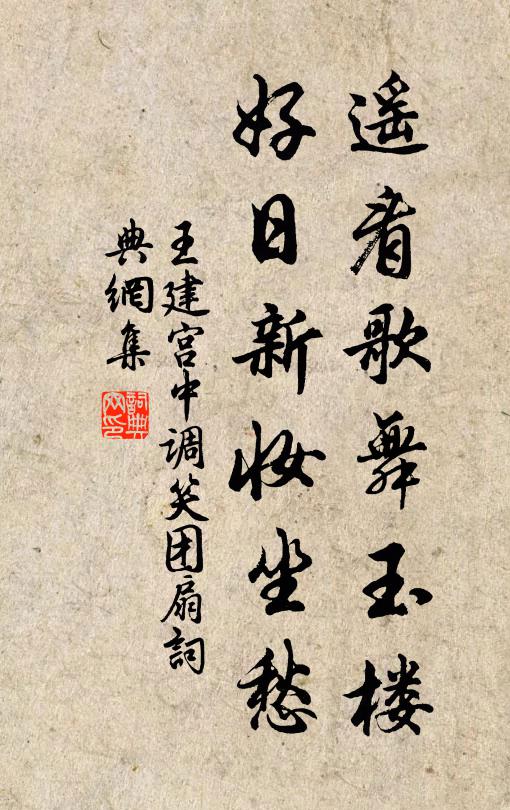 遥看歌舞玉楼
好日新妆坐愁
王建宫中调笑团扇詞
典網集
詞典
网印